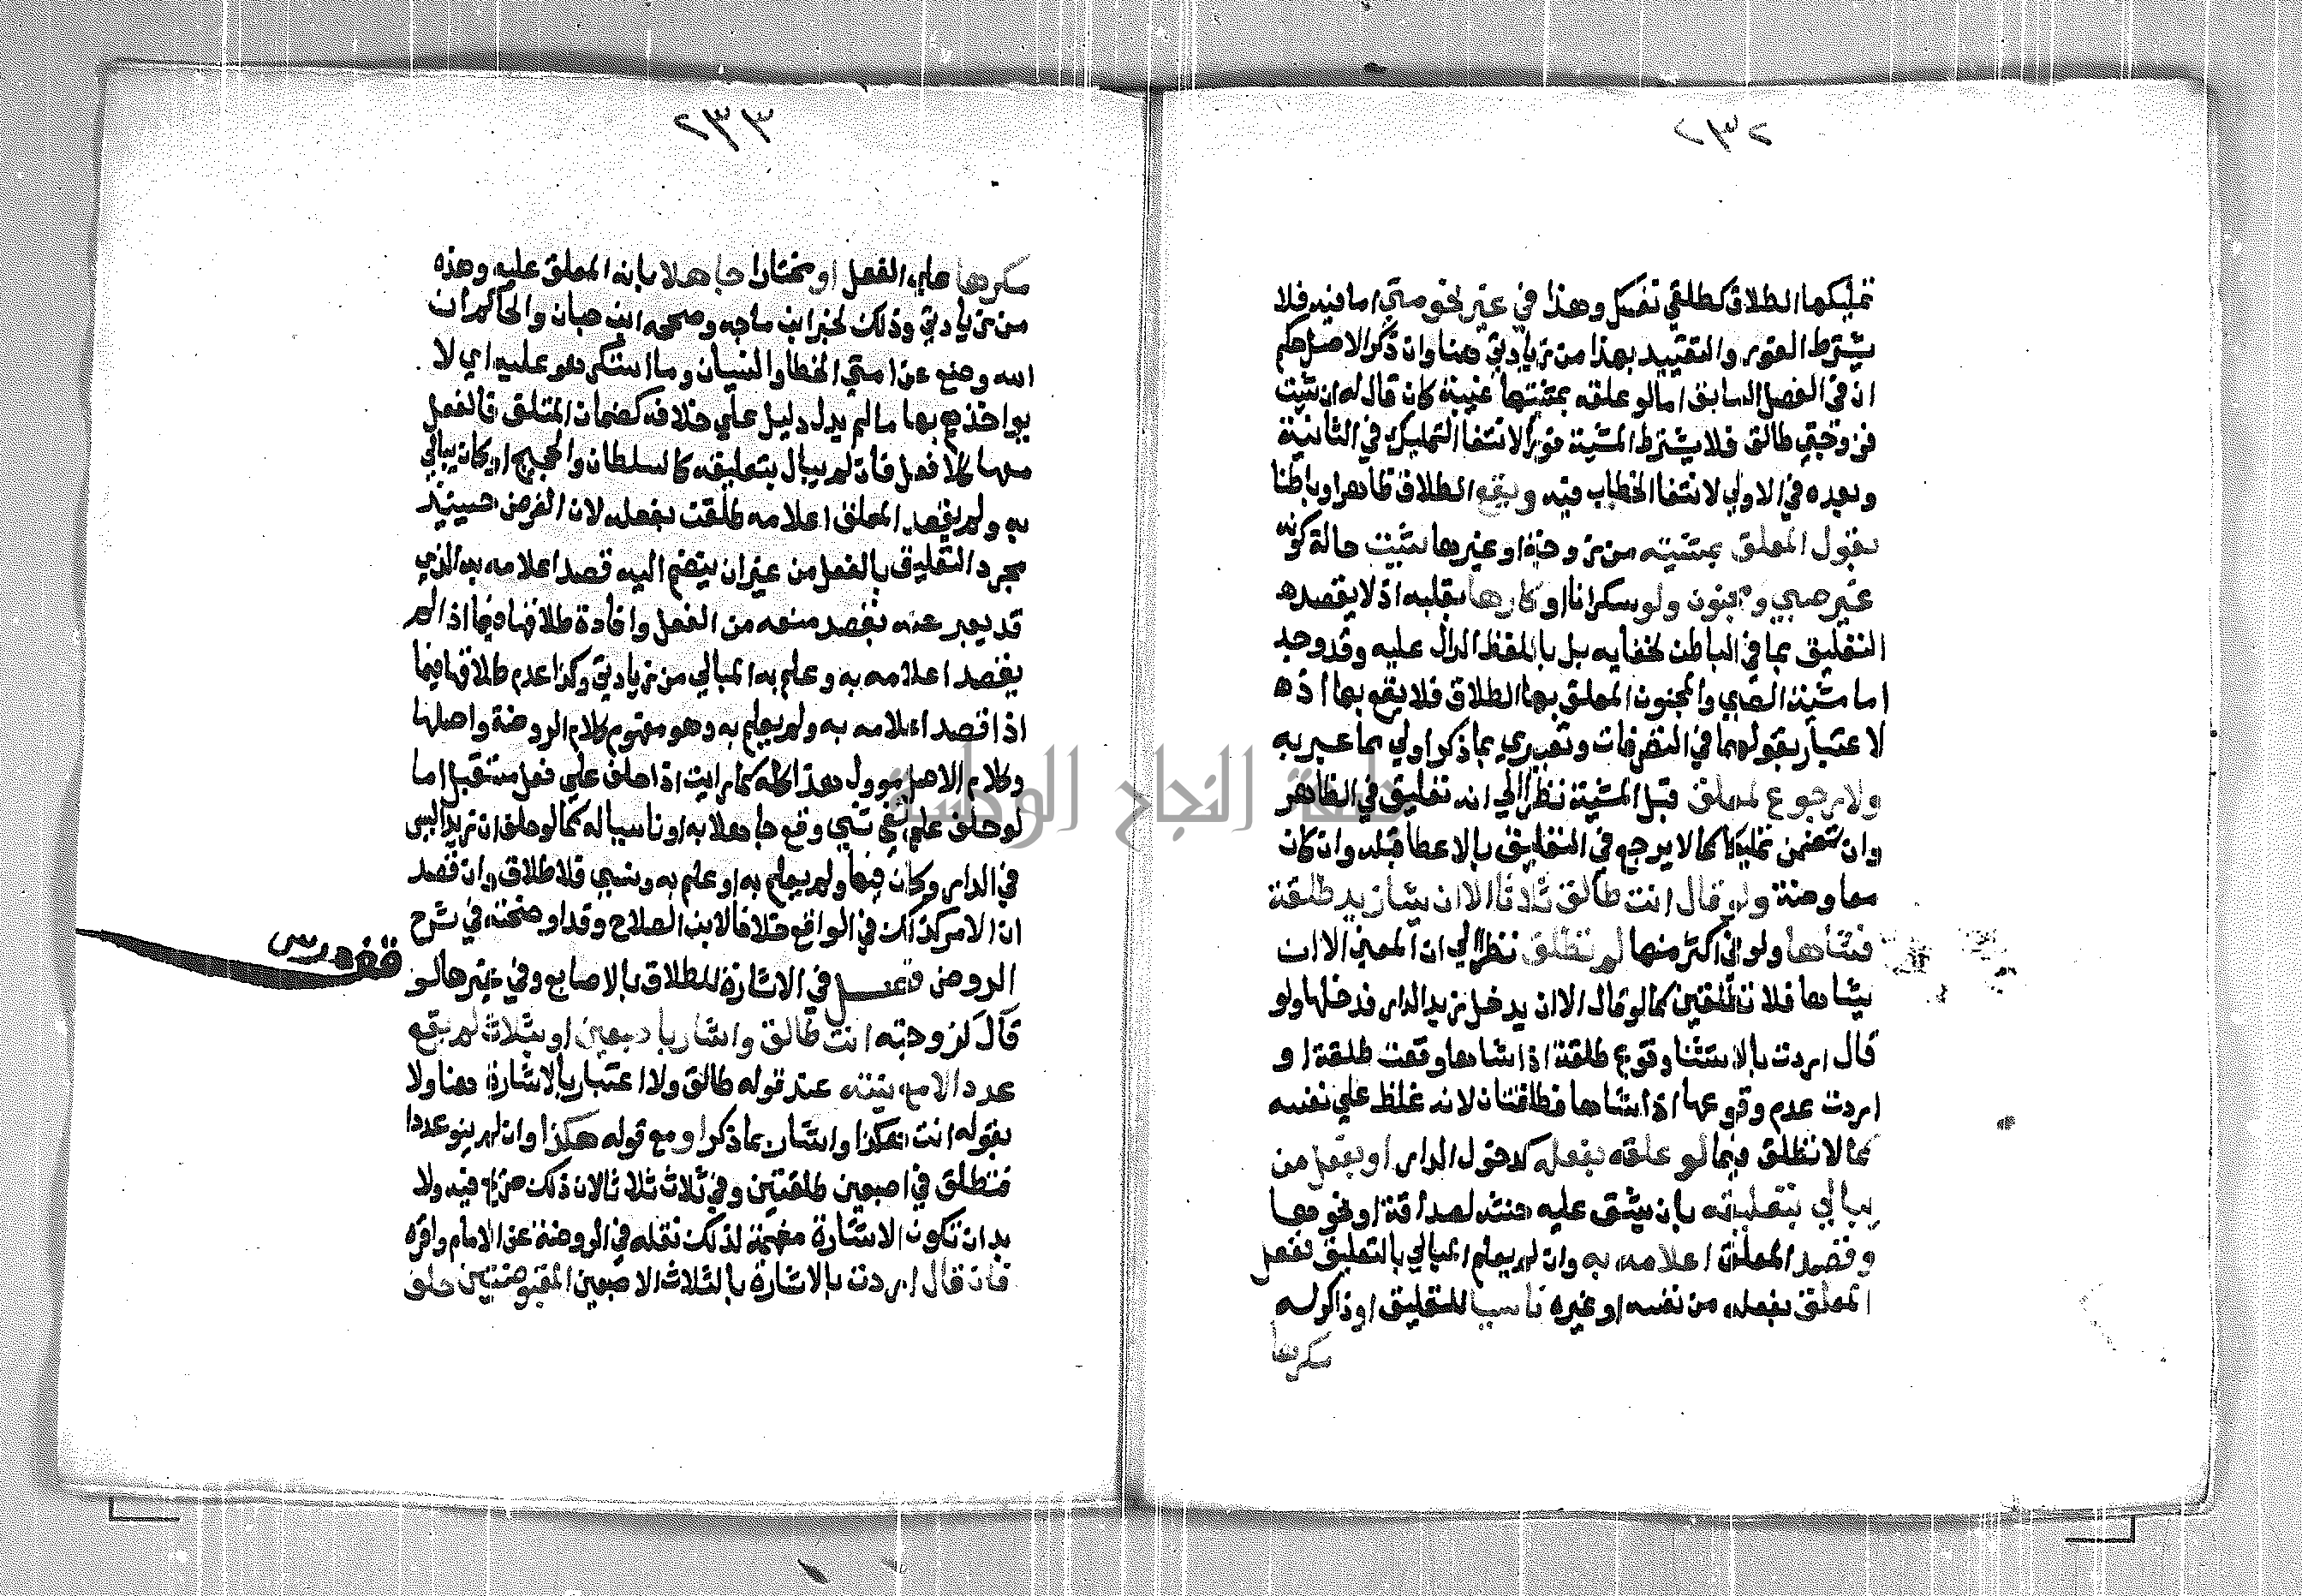 ٢٣٢
تمليكها الطلاق كطلقي نفسك وهذا في غير نحو متي اما فيه فلا
يشترط الفور والتقييد بهذا من زيادتي هنا وان ذكر الاصل حكم
ان في الفصل السابق اما لو علقه بمشيتها غيبة كان قال له ان شيت
فزوجتي طالق فلا يشترط المشية فورا لانتفا التمليك في الثانية
وبعده في الاولي لانتفا الخطاب فيه ويقع الطلاق ظاهرا وباطنا
بقول المعلق بمشيته من زوجة او غيرها شيت حالة كونه
غير صبي ومجنون ولو سكرانا او كارها بقلبه اذ لا يقصد
التعليق بما في الباطن لخفايه بل باللفظ الدال عليه وقد وجد
اما مشية الصبي والمجنون المعلق بها الطلاق فلا يقع بها اذ
لا عتبار بقولهما في التصرفات وتعبيري بما ذكر اولي مما عبر به
ولا رجوع لمعلق قبل المشية نظرا الي انه تعليق في الظاهر
وان تضمن تمليكا كما لا يرجع في التعليق بالاعطا قبله وان كان
معاوضة ولو قال انت طالق ثلاثا الا ان يشا زيد طلقة
فشاها ولو في اكثر منها لم تطلق نظرا الي ان المعني الا ان
يشاها فلا تطلقين كما لو قال الا ان يدخل زيد الدار فدخلها ولو
قال اردت بالاستثنا وقوع طلقة اذا شاها وقعت طلقة او
اردت عدم وقوعها اذا شاها فطلقتان لانه غلظ علي نفسه
كما لا تطلق فيما لو علقه بفعله كدخول الدار او بفعل من
يبالي بتعليقه بان يشق عليه حنثه لصداقة او نحوها
وقصد المعلق اعلامه به وان لم يعلم المبالي بالتعليق ففعل
المعلق بفعله من نفسه او غيره ناسيا للتعليق او ذاكر له
مكرها
٢٣٣
مكرها علي الفعل او مختارا جاهلا بانه المعلق عليه وهذه
من زيادتي وذلك لخبر ابن ماجه وصححه ابن حبان والحاكم ان
الله وضع عن امتي الخطا والنسيان وما استكرهو عليه اي لا
يواخذهم بها ما لم يدل دليل علي خلافه كضمان المتلف فالفعل
معها كلا فعل فان لم يبال بتعليقه كالسلطان والحجيج او كان يبالي
به ولم يقصد المعلق اعلامه طلقت بفعله لان الغرض حينيذ
مجرد التعليق بالفعل من غير ان ينضم اليه قصد اعلامه به الذي
قد يعبر عنه بقصد منعه من الفعل وافادة طلاقها فيما اذا لم
يقصد اعلامه به وعلم به المبالي من زيادتي وكذا عدم طلاقها فيما
اذا قصد اعلامه به ولم يعلم به وهو مفهوم كلام الروضة واصلها
وكلام الاصل موول هذا كله كما رايت اذا حلف علي فعل مستقبل اما
لو حلف علي نفي شي وقع جاهلا به او ناسيا له كما لو حلف ان زيدا ليس
في الدار وكان فيها ولم يعلم به او علم به ونسي فلا طلاق وان قصد
ان الامر كذلك في الواقع خلافا لابن الصلاح وقد اوضحته في شرح
الروض فصل في الاشارة للطلاق بالاصابع وفي غيرها لو
قال لزوجته انت طالق واشار باصبعين او بثلاث لم يقع
عدد الا مع نيته عند قوله طالق ولا اعتبار بالاشارة هنا ولا
بقوله انت هكذا واشار بما ذكر او مع قوله هكذا وان لم ينو عددا
فتطلق في اصبعين طلقتين وفي ثلاث ثلاثا لان ذلك صريح فيه ولا
بد ان تكون الاشارة مفهمة لذلك نقله في الروضة عن الامام واقره
فان قال اردت بالاشارة بالثلاث الاصبعين المقبوضتين حلف